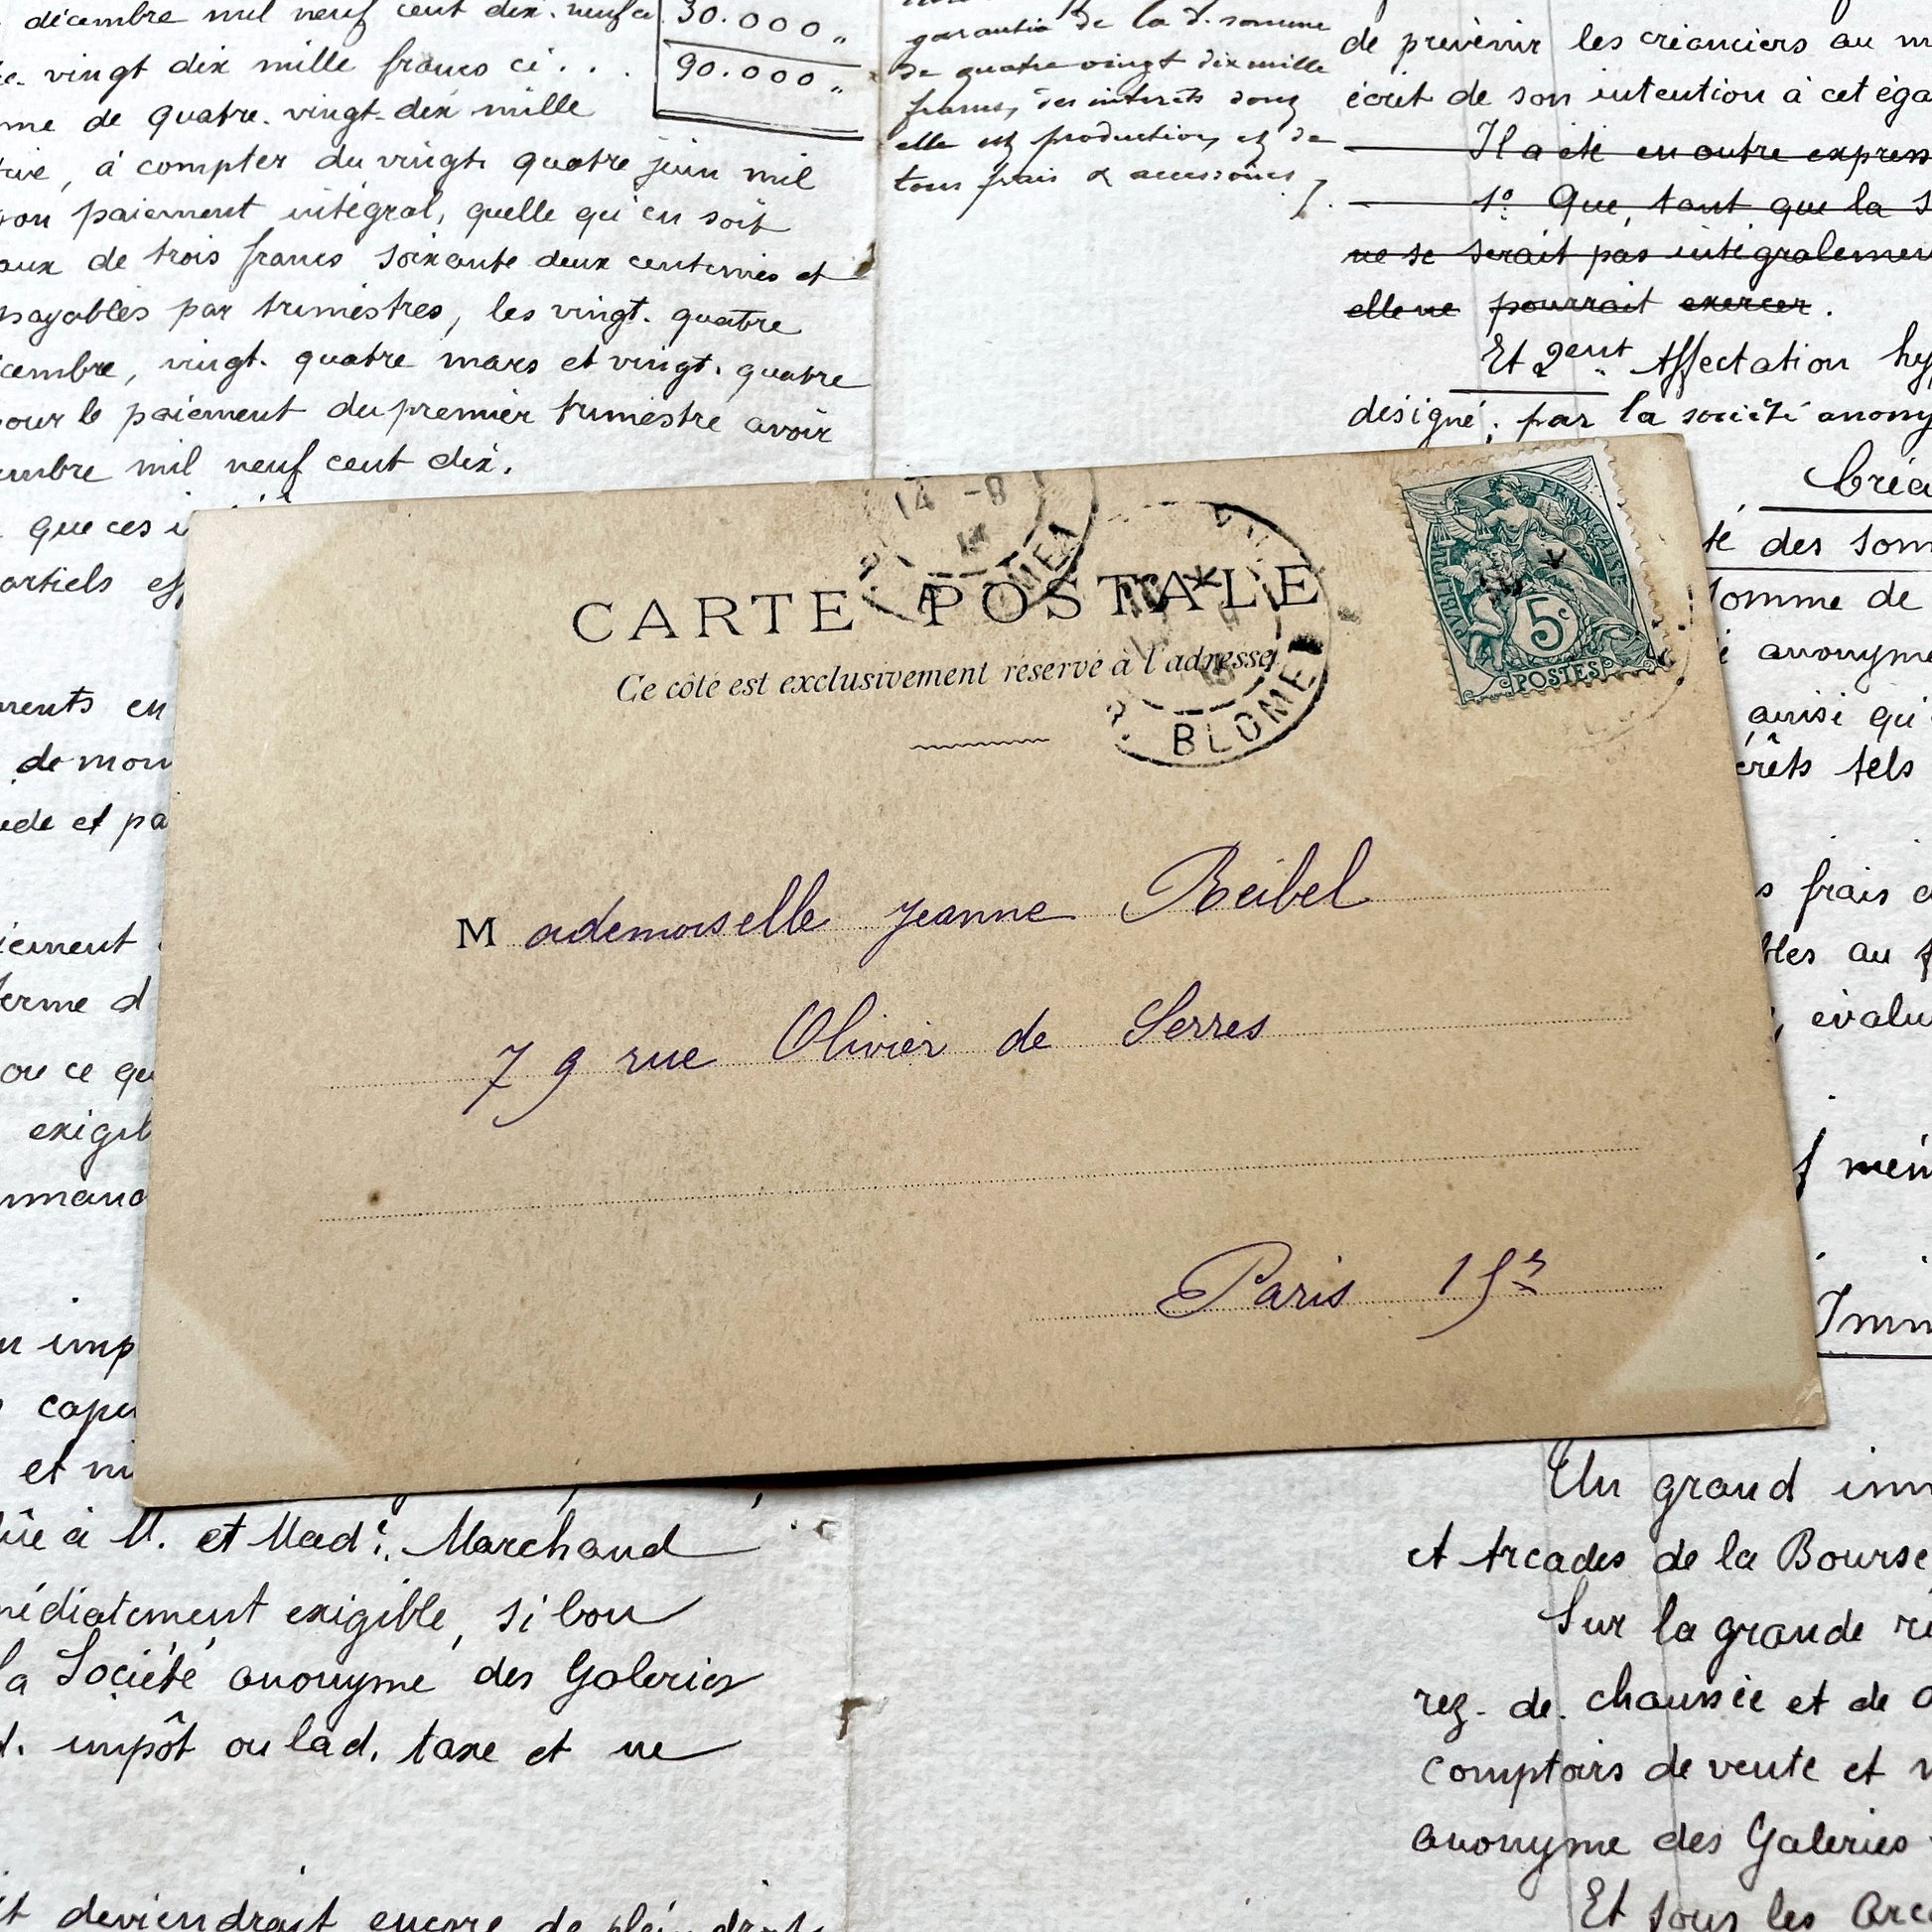 décembre mil neuf cent dix. neuf ci
30.000 „
vingt dix mille francs ci . . .
90.000 „
me de quatre. vingt. dix mille
, à compter du vingt. quatre juin mil
son paiement intégral, quelle qu'en soit
aux de trois francs soixante deux centimes et
payables par trimestres, les vingt. quatre
cembre, vingt. quatre mars et vingt. quatre
pour le paiement du premier trimestre avoir
embre mil neuf cent dix.
que ces
artiels
ments en
de mou
ede et pa
iement
terme d
ou ce qu
exigib
et ni
garantie de la d. somme
de quatre vingt dix mille
francs, des intérêts dont
elle est production, et de
tous frais & accessoires
de prévenir les créanciers au m
écrit de son intention à cet éga
Il a été en outre express
1º Que, tant que la s
ne se serait pas intégralemen
elle ne pourrait exercer.
Et 2ent Affectation hy
désigné, par la société anony
Créa
té des som
somme de
anonyme
ainsi qu'
érêts tels
s frais e
bles au
, évalu
mêm
Imm
CARTE POSTALE
Ce côté est exclusivement réservé à l'adresse
14 -8
BLOMET
BLOMET
RÉPUBLIQUE FRANÇAISE
5c
POSTES
Mademoiselle Jeanne Reibel
79 rue Olivier de Serres
Paris 15e
dûe à M. et Made. Marchand
médiatement exigible, si bon
la Société anonyme des Galeries
d. impôt ou lad. taxe et ne
it deviendrait encore de plein droit
Un grand imm
et Arcades de la Bourse
Sur la grande
rez. de. chaussée et de
comptoirs de vente et
anonyme des Galeries
Et sous les Arc